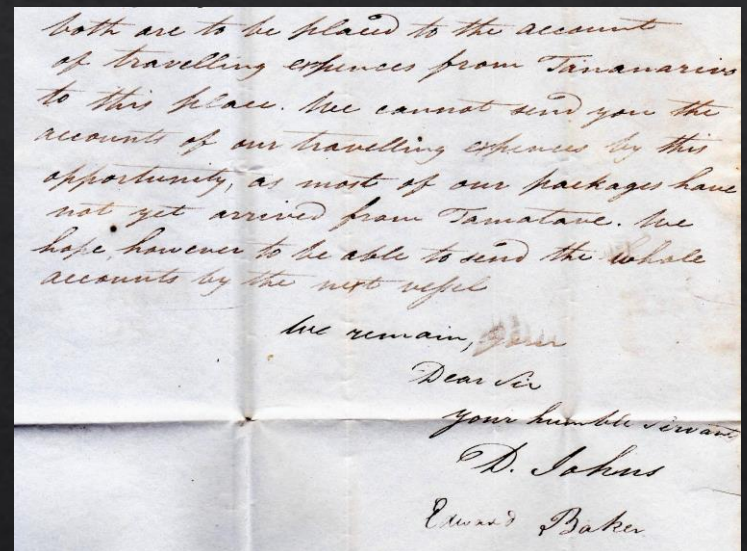 both are to be placed to the account
of travelling expences from Tananarivo
to this place. We cannot send you the
accounts of our travelling expences by this
opportunity, as most of our packages have
not yet arrived from Tamatave. We
hope, however to be able to send the whole
accounts by the next vessel
We remain,
Dear Sir
your humble servant
D. Johns
Edward Baker